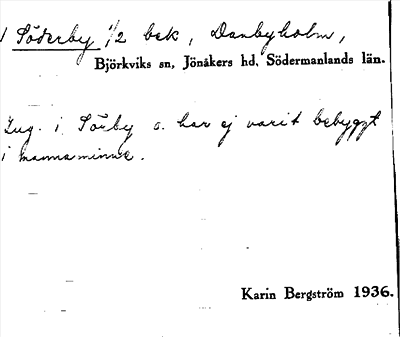 1 Söderby 1/2 bek, Danbyholm,
Björkviks sn, Jönåkers hd, Södermanlands län.
i Sörby o. har ej varit bebyggt
i mannaminne.
Karin Bergström 1936.